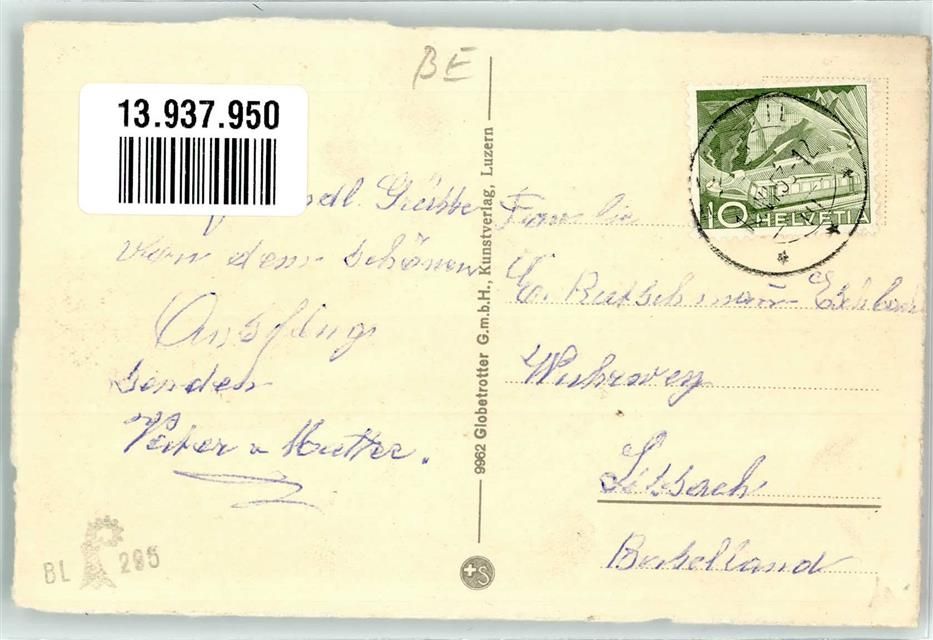 BE
13.937.950
dl. Grüsse
von dem schönen
Ausflug
senden
Vater u Mutter.
BL 295
9962 Globetrotter G.m.b.H., Kunstverlag, Luzern
S
10 HELVETIA
Familie
E. Rutschmann
Wuhrweg
Sissach
Baselland